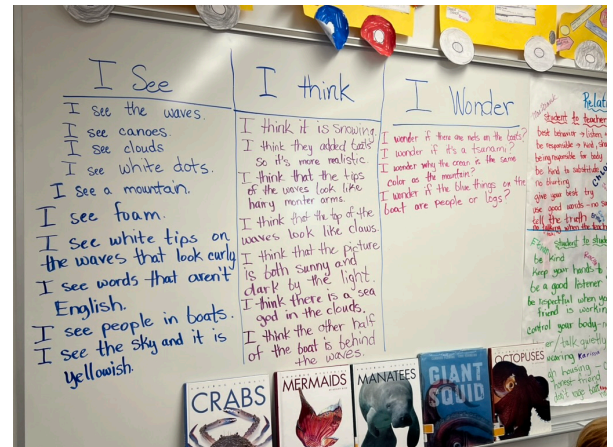 I See
I see the waves.
I see canoes.
I see clouds
I see white dots.
I see a mountain.
I see foam.
I see white tips on
the waves that look curly
I see words that aren't
English.
I see people in boats.
I see the sky and it is
yellowish.
I think
I think it is snowing.
I think they added
so it's more realistic.
I think that the tips
of the waves look like
hairy monter arms.
I think that the top of the
waves look like claws.
I think that the picture
is both sunny and
dark by the light.
I think there is a sea
god in the clouds.
I think the other half
of the boat is behind
the waves.
I Wonder
I wonder if there are nets on the boats?
I wonder if it's a tsunami?
I wonder why the ocean is the same
color as the mountain?
I wonder if the blue things on the
boat are people or logs?
student to teacher
best behavior → listen
be responsible → kind
being responsible for body
be kind to substitute
no blurting
give your best try
use good words - no
tell the truth
student to stude
be kind
keep your hands to
be a good listener
be respectful when yo
friend is workin
control your body
talk quietly
CRABS
MERMAIDS
MANATEES
GIANT
SQUID
OCTOPUSES